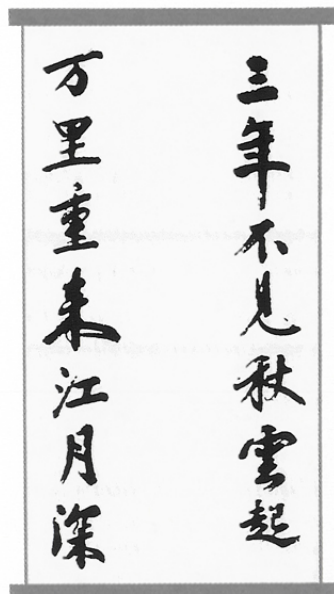 三年不见秋雲起
万里重来江月深